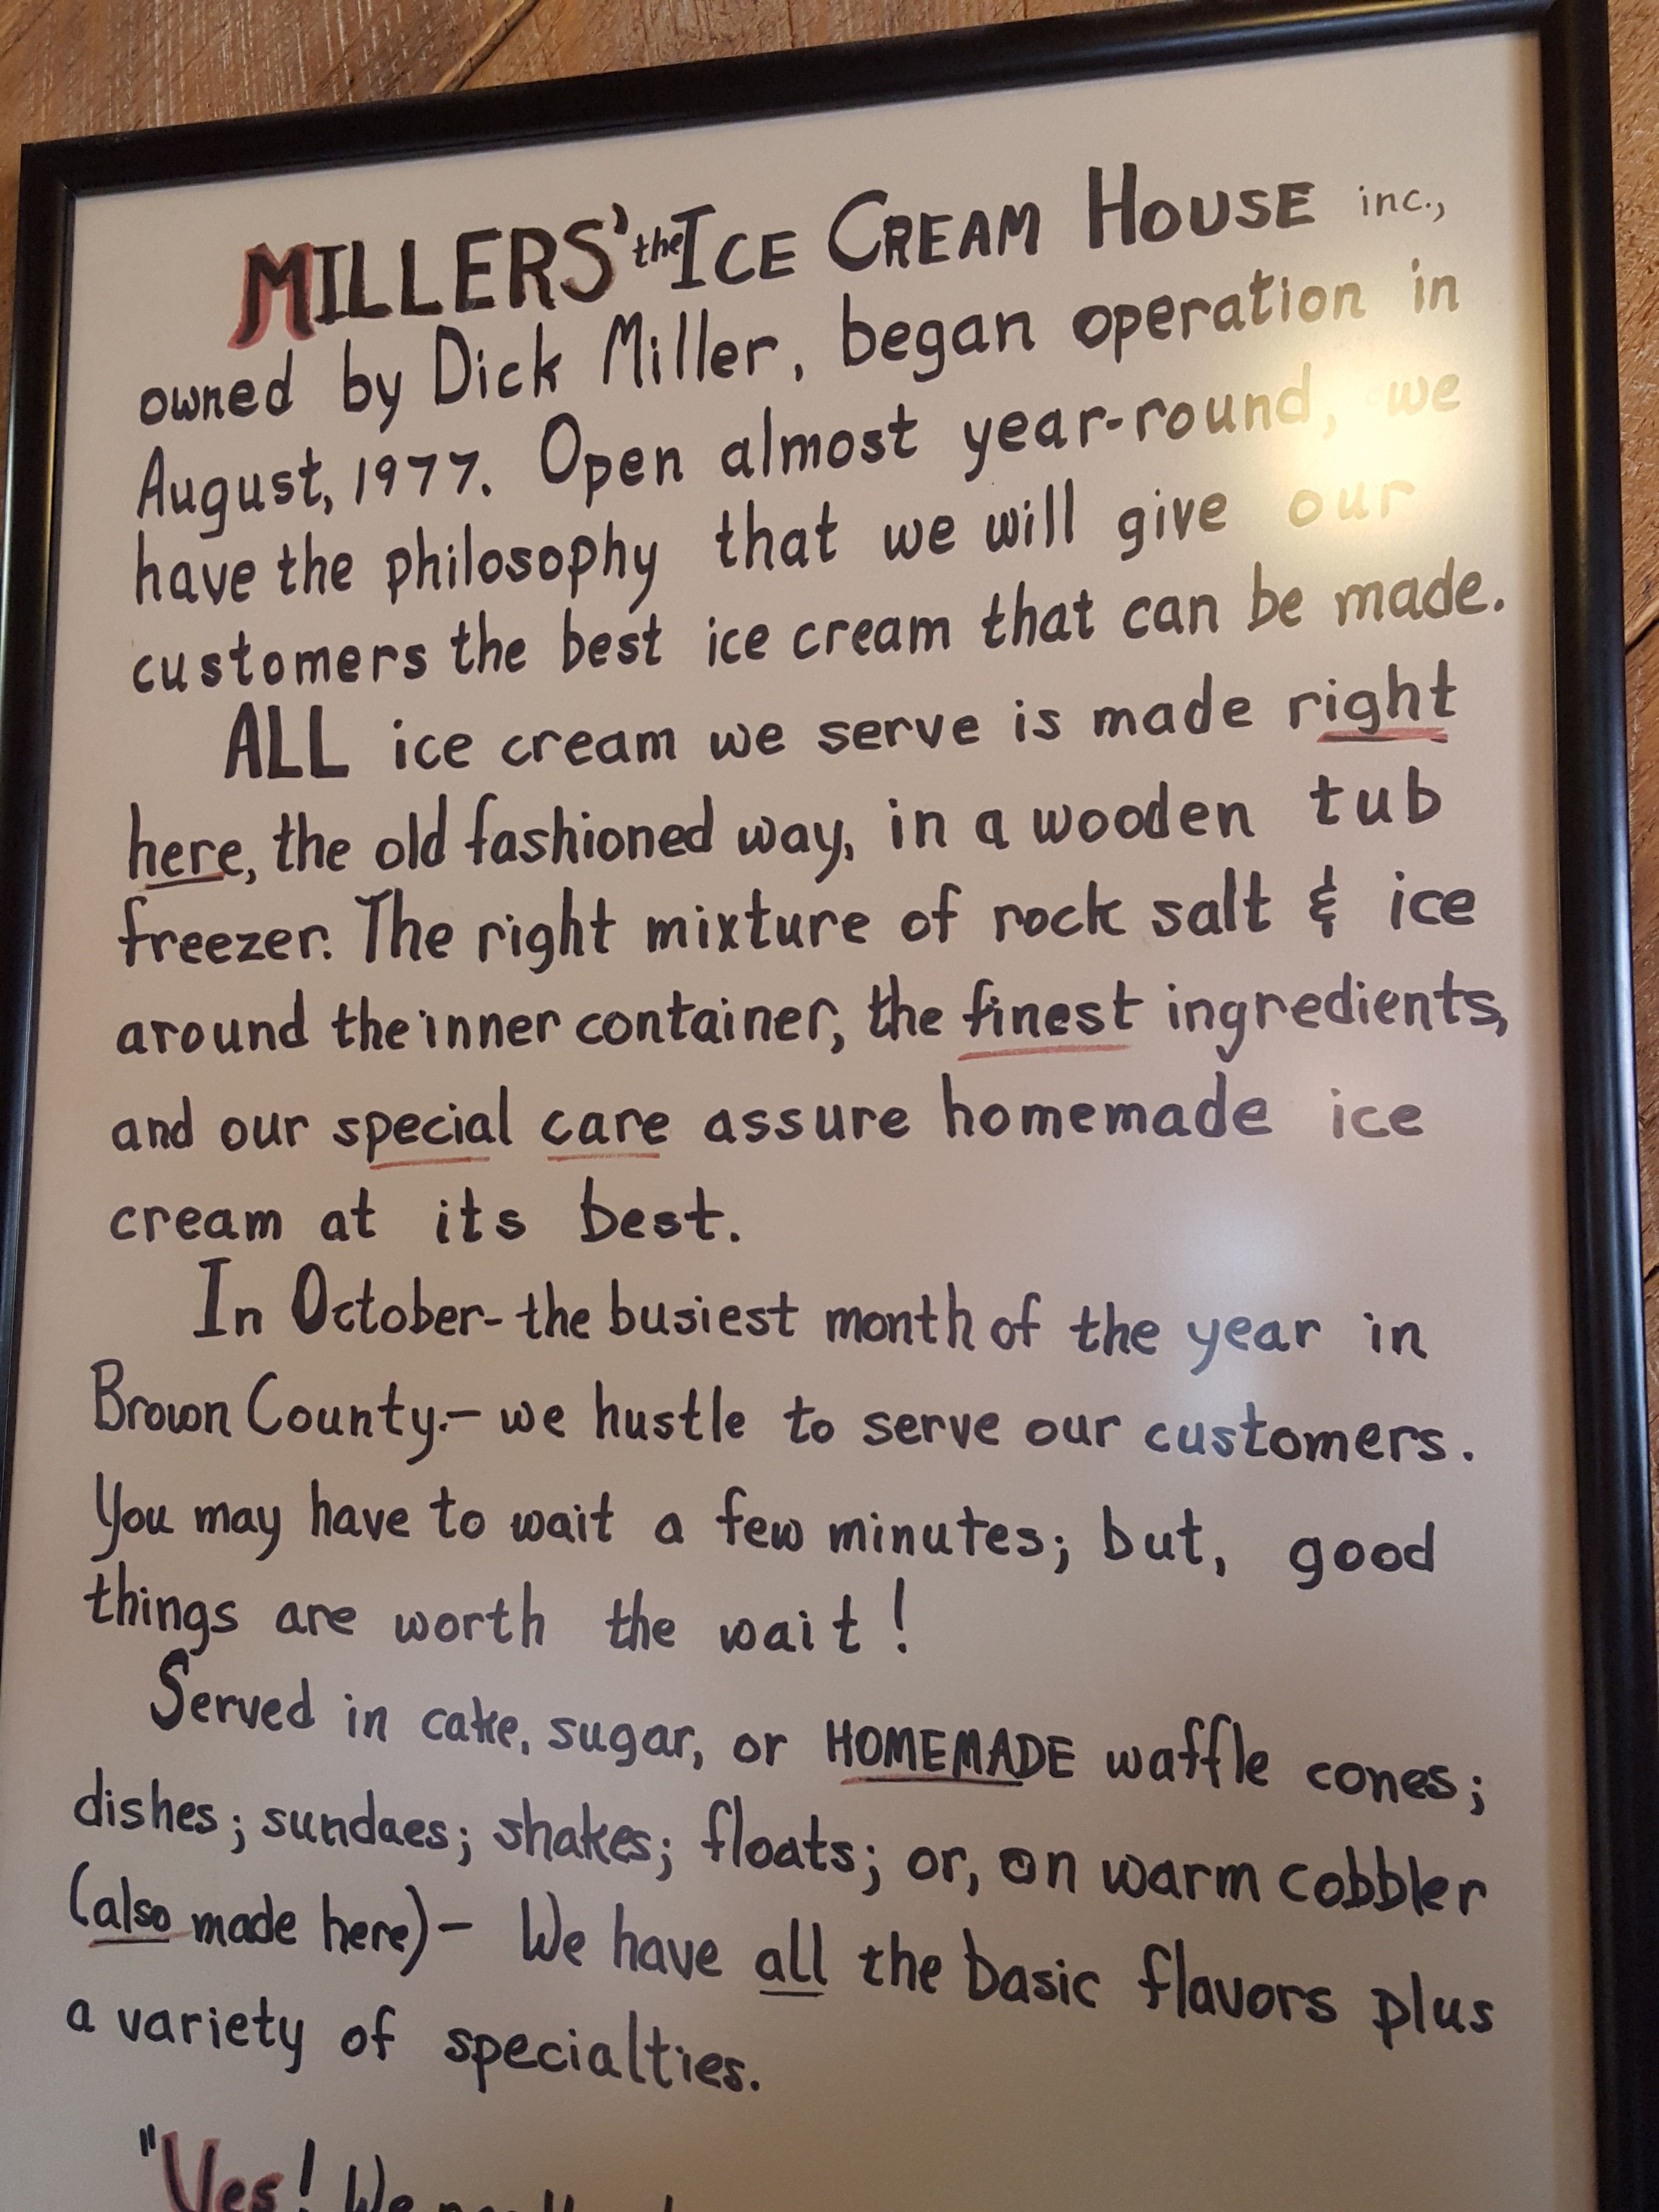 MILLERS' the ICE CREAM HOUSE inc.,
owned by Dick Miller, began operation in
August, 1977. Open almost year-round, we
have the philosophy that we will give our
customers the best ice cream that can be made.
ALL ice cream we serve is made right
here, the old fashioned way, in a wooden tub
freezer. The right mixture of rock salt & ice
around the inner container, the finest ingredients,
and our special care assure homemade ice
cream at its best.
In October- the busiest month of the year in
Brown County.- we hustle to serve our customers.
You may have to wait a few minutes; but, good
things are worth the wait!
Served in cake, sugar, or HOMEMADE waffle cones;
dishes; sundaes; shakes; floats; or, on warm cobbler
(also made here)- We have all the basic flavors plus
a variety of specialties.
"Yes! We